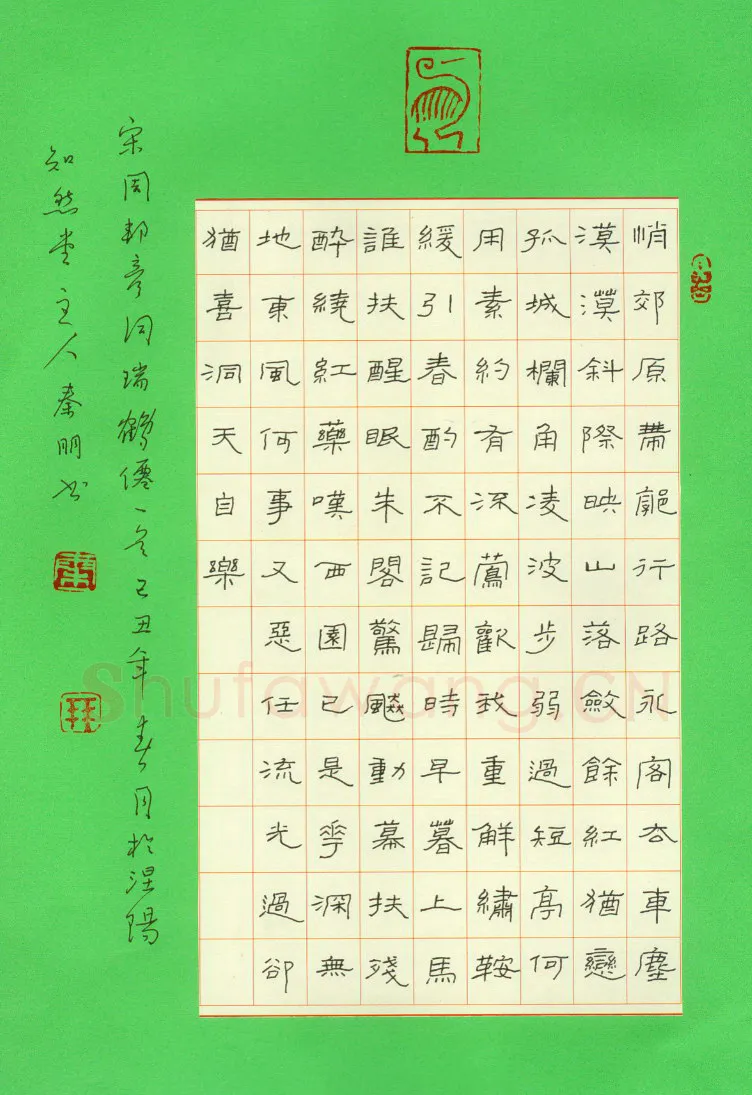 悄郊原帶郭行路永客去車塵
漠漠斜際映山落斂餘紅猶戀
孤城欄角凌波步弱過短亭何
用素約有深鶯歡我重解繡鞍
緩引春酌不記歸時早暮上馬
誰扶醒眠朱閣驚飈動幕扶殘
醉繞紅藥嘆西園已是花深無
地東風何事又惡任流光過卻
猶喜洞天自樂
宋周邦彥詞瑞鶴僊一首己丑年春月於涅陽
知然堂主人秦明書
Shufawang.CN